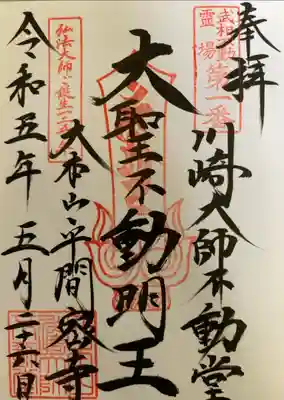 奉拝
武相不動
霊場
第一番
川崎大師不動堂
大聖不動明王
大本山平間寺
弘法大師ご誕生一二五〇年
令和五年 五月二十六日